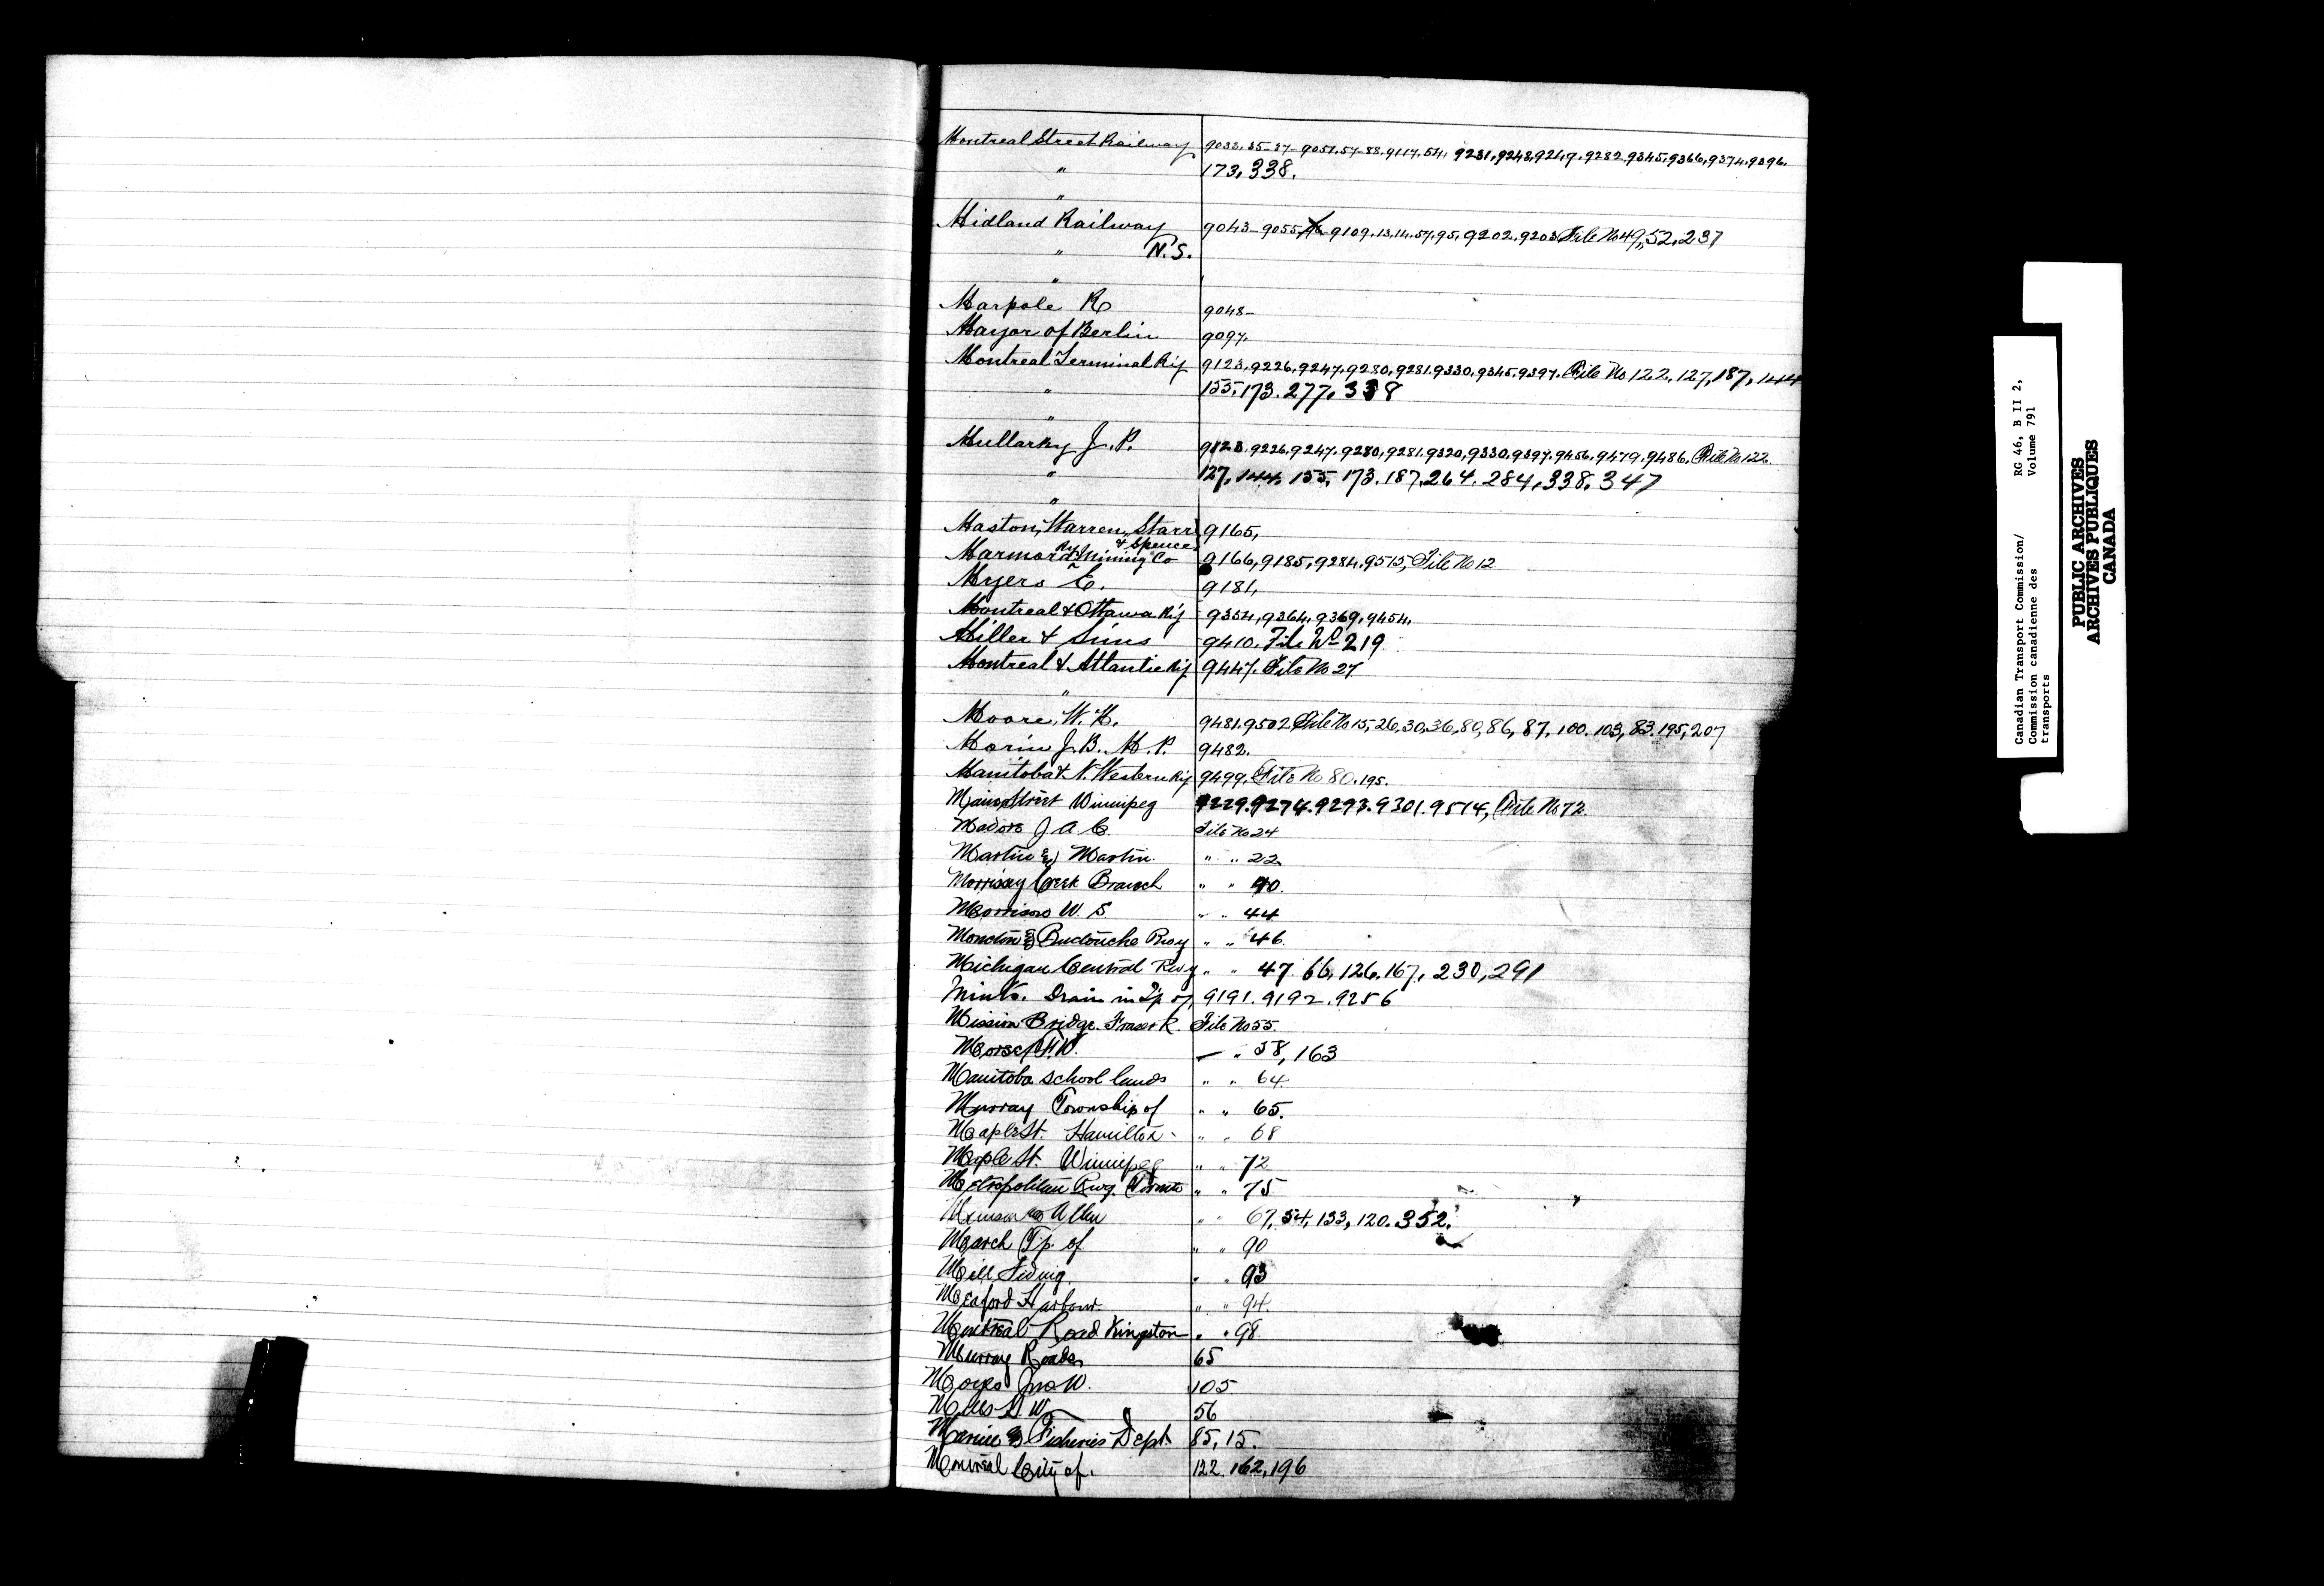 Montreal Street Railway 9033.35-37-9051.57-88.9117.54. 9231.9248.9249.9282.9345.9366.9374.9396.
" 173.338.
"
Midland Railway 9043-9055 9109.13.14.57.95.9202.9203 File No 49,52.237
" N.S.
"
Marpole R 9048-
Mayor of Berlin 9097.
Montreal Terminal Ry 9123.9226.9247.9280.9281.9330.9345.9397. File No 122.127,187,144
" 155.173.277.338
"
Mullarky J.P. 9123.9226.9247.9280.9281.9320,9330.9397.9456.9479.9486. File No 122.
" 127.144.155.173.187.264.284.338.347
"
Maston, Warren, Starr & Spence 9165,
Marmora Ry & Mining Co 9166,9185,9284.9515, File No 12
Myers E. 9181,
Montreal & Ottawa Ry 9354,9364,9369,9454.
Miller & Sims 9410. File No 219
Montreal & Atlantic Ry 9447. File No 27
"
Moore, W.H. 9481.9502 File No 15,26,30,36,80,86,87.100.103,83.195,207
Morin J.B. M.P. 9482.
Manitoba & N. Western Ry 9499. File No 80.195.
Main Street Winnipeg 9229.9274.9293.9301.9514, File No 72.
Madore J A C. File No 24
Martin & Martin. " " 22
Morrissey Creek Branch " " 40.
Morrison W. S. " " 44
Moncton & Buctouche Rwy " " 46.
Michigan Central Rwy " " 47 66,126.167, 230,291
Minto. Drain in Tp of, 9191.9192.9256
Mission Bridge. Fraser R. File No 55.
Morse F.W. " 58,163
Manitoba school lands " " 64.
Murray Township of " " 65.
Maple St. Hamilton - " " 68
Maple St. Winnipeg " " 72
Metropolitan Rwy. Toronto " " 75
& Allen " " 67,54,133,120.352.
March Tp. of " " 90
Mill Siding. " " 93
Meaford Harbour. " " 94.
Montreal Road Kingston " " 98.
Murray Roads 65
Jno W. 105
Mills D W 56
Marine & Fisheries Dept 85,15.
Montreal City of. 122.162,196
Canadian Transport Commission/ RG 46, B II 2,
Commission canadienne des Volume 791
transports
PUBLIC ARCHIVES
ARCHIVES PUBLIQUES
CANADA